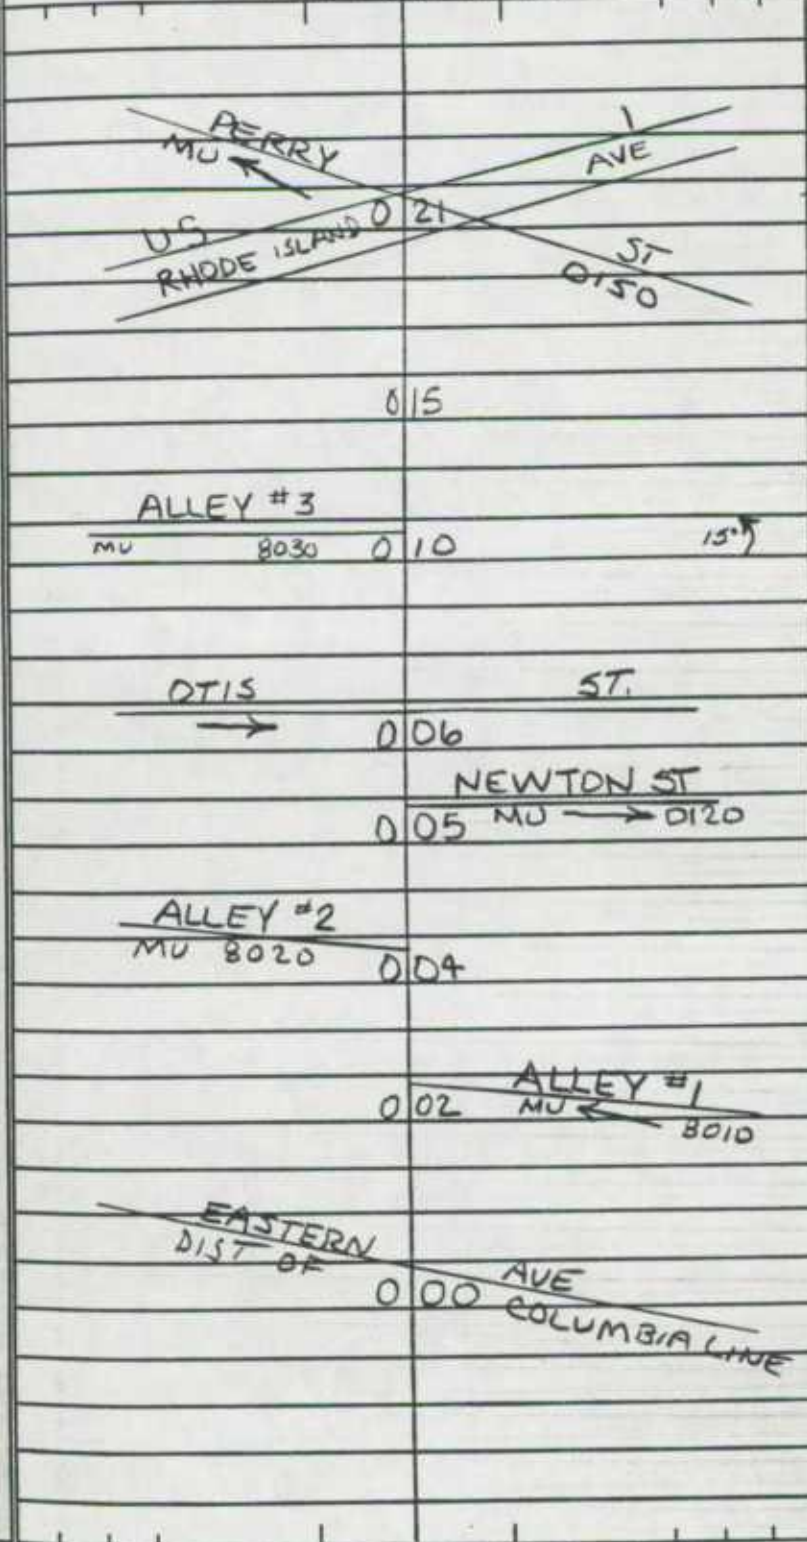 PERRY
MU
1
AVE
US
RHODE ISLAND
0 21
ST
0150
0 15
ALLEY #3
MU 8030 0 10 15°
OTIS ST.
0 06
NEWTON ST
0 05 MU 0120
ALLEY #2
MU 8020 0 04
ALLEY #1
0 02 MU 8010
EASTERN AVE
DIST OF 0 00 COLUMBIA LINE